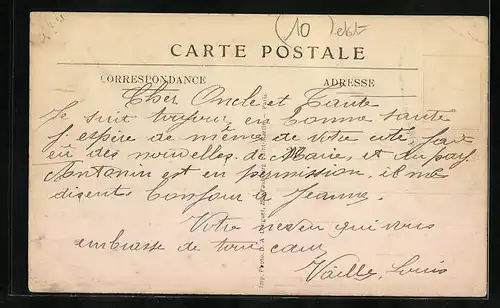 (10) état
CARTE POSTALE
CORRESPONDANCE ADRESSE
Cher Oncle et Tante
Je suit toujour en bonne sante
j'espère de même de votre coté, j'ait
eû des nouvelles de Marie, et du pay
Antonin est en permission, il me
disent bonjour a Jeanne.
Votre neveu qui vous
embrasse de tout cœur
Vaille Louis
Imp. Photo. A.